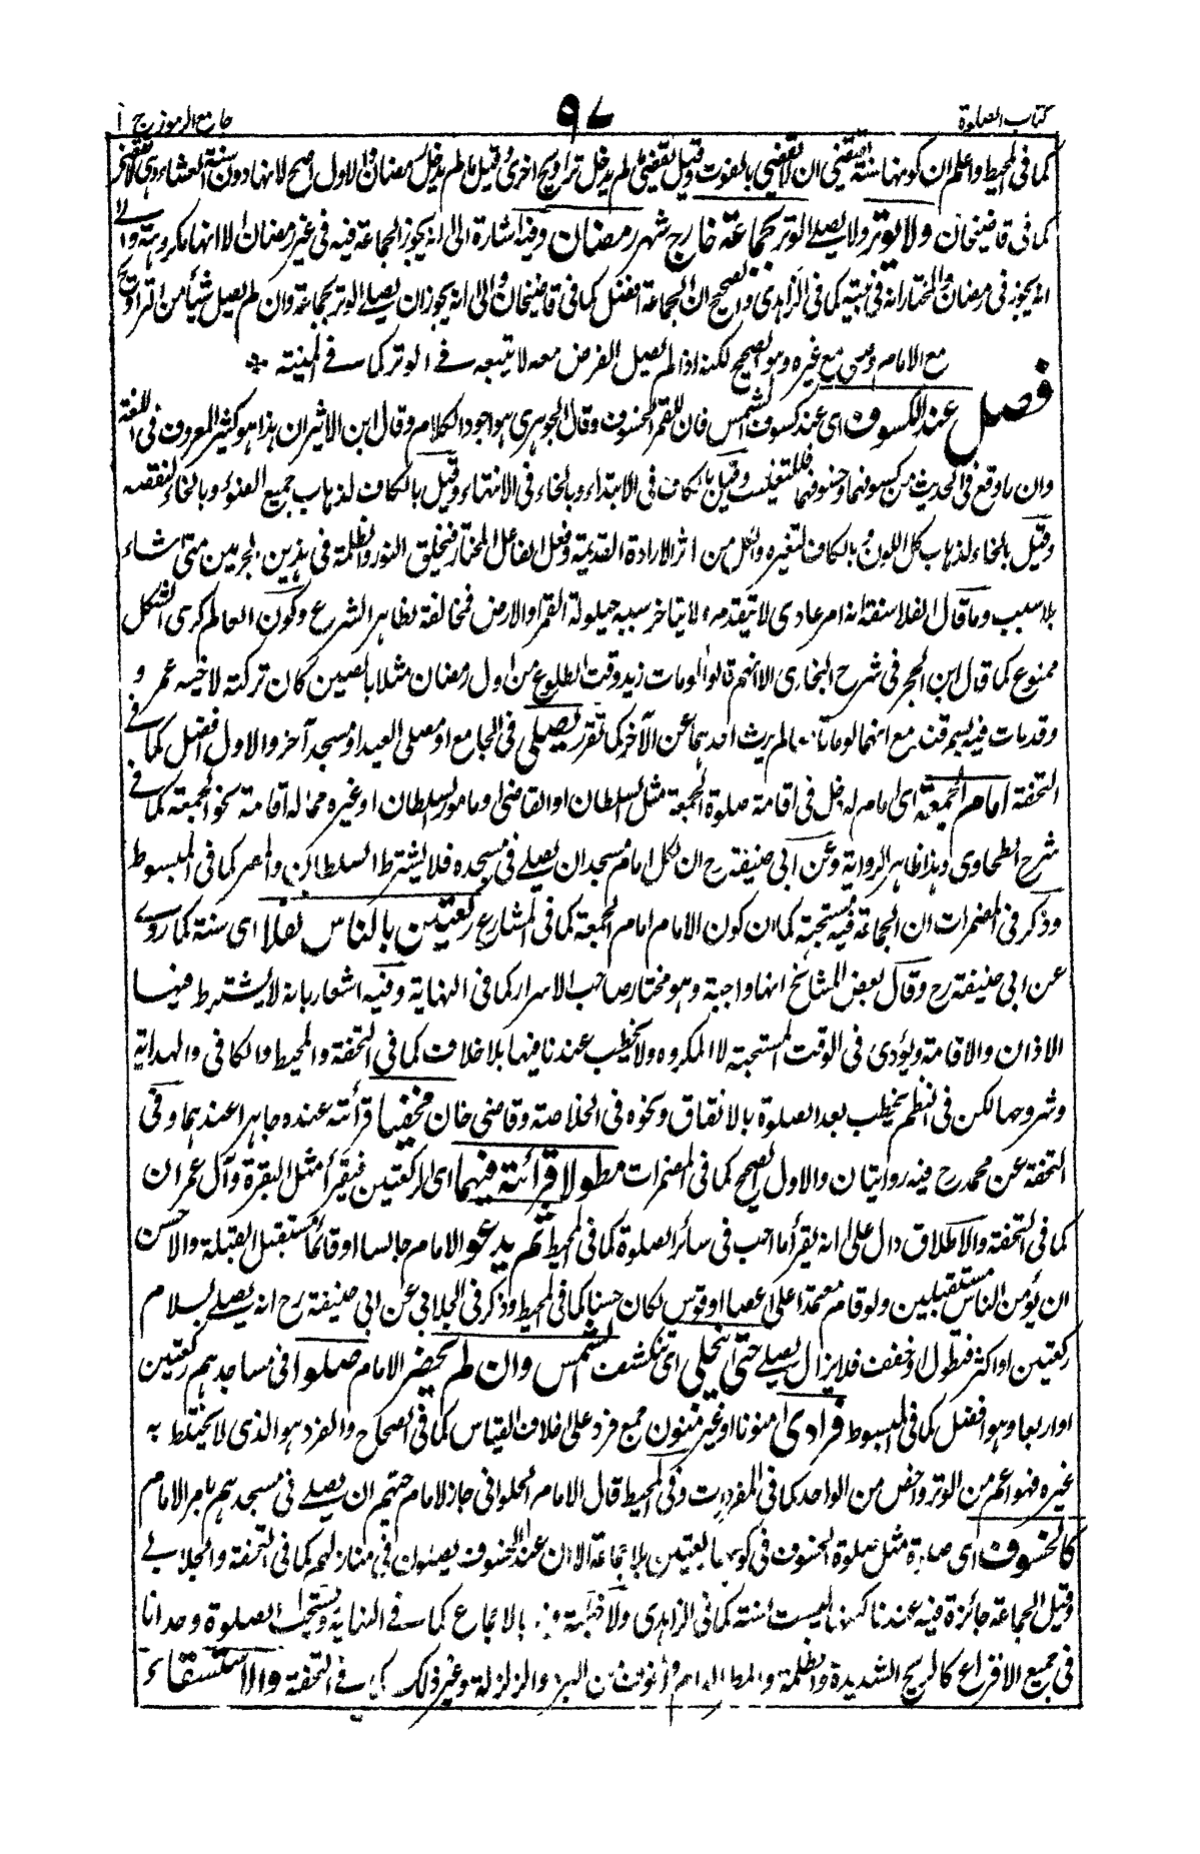 كتاب الصلوة
٩٧
جامع الرموز ج ١
كما فى المحيط واعلم ان كونها سنة يقتضى ان لا تقضى بالفوت وقيل يقضى ما لم يدخل تراويح اخرى وقيل ما لم يدخل رمضان والاول اصح لانها دون سنة العشاء وهى لا تقضى
كما فى قاضيخان ولا يوتر ولا يصلے الوتر بجماعة خارج شهر رمضان وفيه اشارة الى انه يجوز الجماعة فيه فى غير رمضان الا انها مكروهة والے
انه يجوز فى رمضان والمختار انه فى بيته كما فى الزاهدى والصحيح ان الجماعة افضل كما فى قاضيخان والى انه يجوز ان يصلے الوتر بجماعة وان لم يصل شيأ من التراويح
مع الامام وصلى مع غيره وهو الصحيح لكنه اذا لم يصل الفرض معه لا يتبعه فے الوتر كما فے المنية
فصل عند الكسوف اى عند كسوف الشمس فان للقمر الخسوف وقال الجوهرى هو اجود الكلام وقال ابن الاثير ان هذا هو كثير المعروف فى اللغة
وان ما وقع فى الحديث من كسوفهما وخسوفهما فللتغليب وقيل بالكاف فى الابتداء وبالخاء فى الانتهاء وقيل بالكاف لذهاب جميع الضوء وبالخاء لنقصه
وقيل بالخاء لذهاب كل اللون وبالكاف لتغيره والكل من اثر الارادة القديمة وفعل الفاعل المختار فيخلق النور والظلمة فى هذين الجرمين متى شاء
بلا سبب وما قال الفلاسفة انه امر عادى لا يتقدم ولا يتاخر سببه حيلولة القمر والارض فمخالفة لظاهر الشرع وكون العالم كرى الشكل
ممنوع كما قال ابن الحجر فى شرح البخارى الا انهم قالوا لو مات زيد وقت الطلوع من اول رمضان مثلا بالصين كان تركته لاخيه عمرو
وقد مات فيه بسمرقند مع انهما لو ماتا لم يرث احدهما عن الآخر كما تقرر يصلى فى الجامع او مصلى العيد او مسجد آخر والاول افضل كما فے
التحفة امام الجمعة اى امام له دخل فى اقامة صلوة الجمعة مثل السلطان او القاضى او مامور السلطان او غيره مما له اقامة نحو الجمعة كما فے
شرح الطحاوى وهذا ظاهر الرواية وعن ابى حنيفة رح ان لكل امام مسجد ان يصلے فى مسجده فلا يشترط السلطان والمصر كما فى المبسوط
وذكر فى المضمرات ان الجماعة فيه مستحبة كما ان كون الامام امام الجمعة كما فى المشارع ركعتين بالناس نفلا اى سنة كما روے
عن ابى حنيفة رح وقال بعض المشائخ انها واجبة وهو مختار صاحب الاسرار كما فى النهاية وفيه اشعار بانه لا يشترط فيها
الاذان والاقامة ويؤدى فى الوقت المستحبة لا المكروه ولا يخطب عندنا فيها بلا خلاف كما فى التحفة والمحيط والكافى والهداية
وشروحها لكن فى النظم يخطب بعد الصلوة بالاتفاق ونحوه فى الخلاصة وقاضى خان مخفيا قرأته عنده جاهرا عندهما وفى
التحفة عن محمد رح فيه روايتان والاول الصحيح كما فى المضمرات مطولا قرائة فيهما اى الركعتين فيقرأ مثل البقرة وآل عمران
كما فى التحفة والاطلاق دال على انه يقرأ ما احب فى سائر الصلوة كما فى المحيط ثم يدعو الامام جالسا او قائما مستقبل القبلة والاحسن
ان يؤمن الناس مستقبلين ولو قام معتمدا على عصا او قوس لكان حسنا كما فى المحيط وذكر فى الجلابى عن ابى حنيفة رح انه يصلے بسلام
ركعتين او اكثر فتطول او خفف فلا يزال يصلے حتى تنجلى اى تنكشف الشمس وان لم يحضر الامام صلوا فى مساجدهم ركعتين
او اربعا وهو افضل كما فى المبسوط فرادى منونا او غير منون جمع فرد على خلاف القياس كما فى الصحاح والفرد هو الذى لا يختلط به
غيره فهو اعم من الوتر واخص من الواحد كما فى المفردات وفى المحيط قال الامام الحلوانى جاز لامام حيهم ان يصلے فى مسجدهم بامر الامام
كالخسوف اى صلوة مثل صلوة الخسوف فى كونها ركعتين بلا جماعة الا ان عند الخسوف يصلون فى منازلهم كما فى التحفة والجلابے
وقيل الجماعة جائزة فيه عندنا لكنها ليست بسنة كما فى الزاهدى ولا خطبة فيه بالاجماع كما فے النهاية ويستحب الصلوة وحدانا
فى جميع الافزاع كالريح الشديدة والظلمة والمطر الدائم والخوف من البرد والزلزلة وغير ذلك كما فے التحفة والاستسقاء